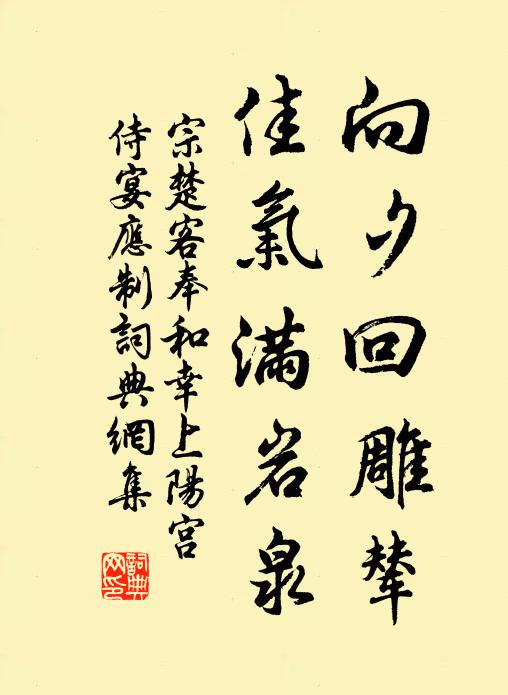 向夕回雕辇
佳氣滿岩泉
宗楚客奉和幸上陽宮
侍宴應制詞典網集
詞典
网印